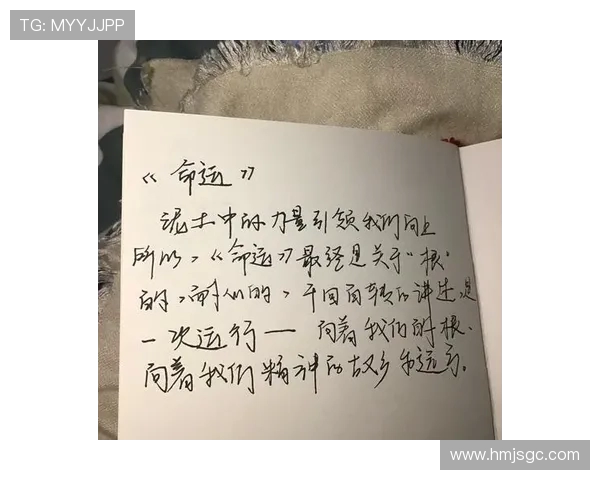 TG: MYYJJPP
《命运》
泥土中的力量引领我们向上
所以，《命运》最终是关于“根”
的，耐人的，千回百转的讲述，是
一次运行—向着我们的根、
向着我们精神的故乡的运行。
www.hmjsgc.com